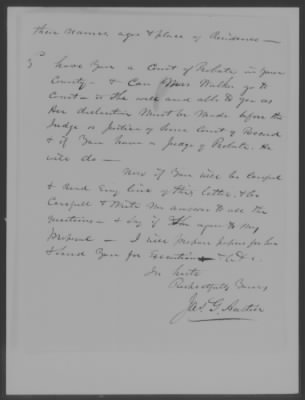 their names ages & place of Residence —
3 have you a Court of Probate in your
County — & Can Mrs Walker go to
Court — is she well and able to go as
Her declaration Must be Made before the
Judge or Justice of Some Court of Record
& if you have a Judge of Probate. He
will do —
Now if you will be Careful
& Read Every line of this letter, & be
Carefull & Write Me answer to all the
questions — & Say if She agrees to My
proposal — I will prepare papers for her
& Send you for Execution & &c.
In haste
Respectfully Yours
Jas G